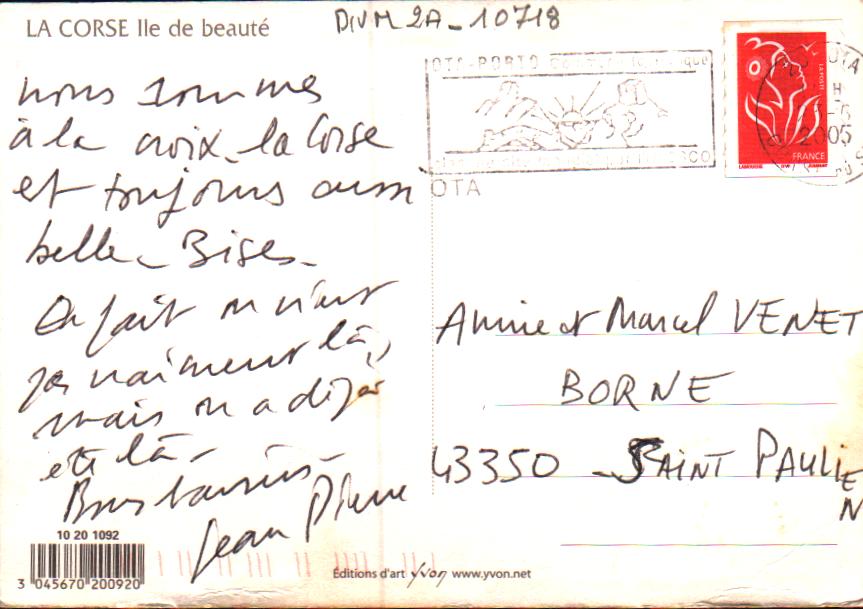 LA CORSE Ile de beauté
DIVM 2A - 10718
nous sommes
à la croix, la Corse
est toujours aussi
belle - Bises -
En fait on n'est
pas vraiment là,
mais on a déjà
été là -
Bons baisers -
Jean Pierre
OTA-PORTO
OTA
OTA
2005
LA POSTE
FRANCE
Annie et Marcel VENET
BORNE
43350 - SAINT PAULIEN
10 20 1092
3 045670 200920
Éditions d'art yvon www.yvon.net